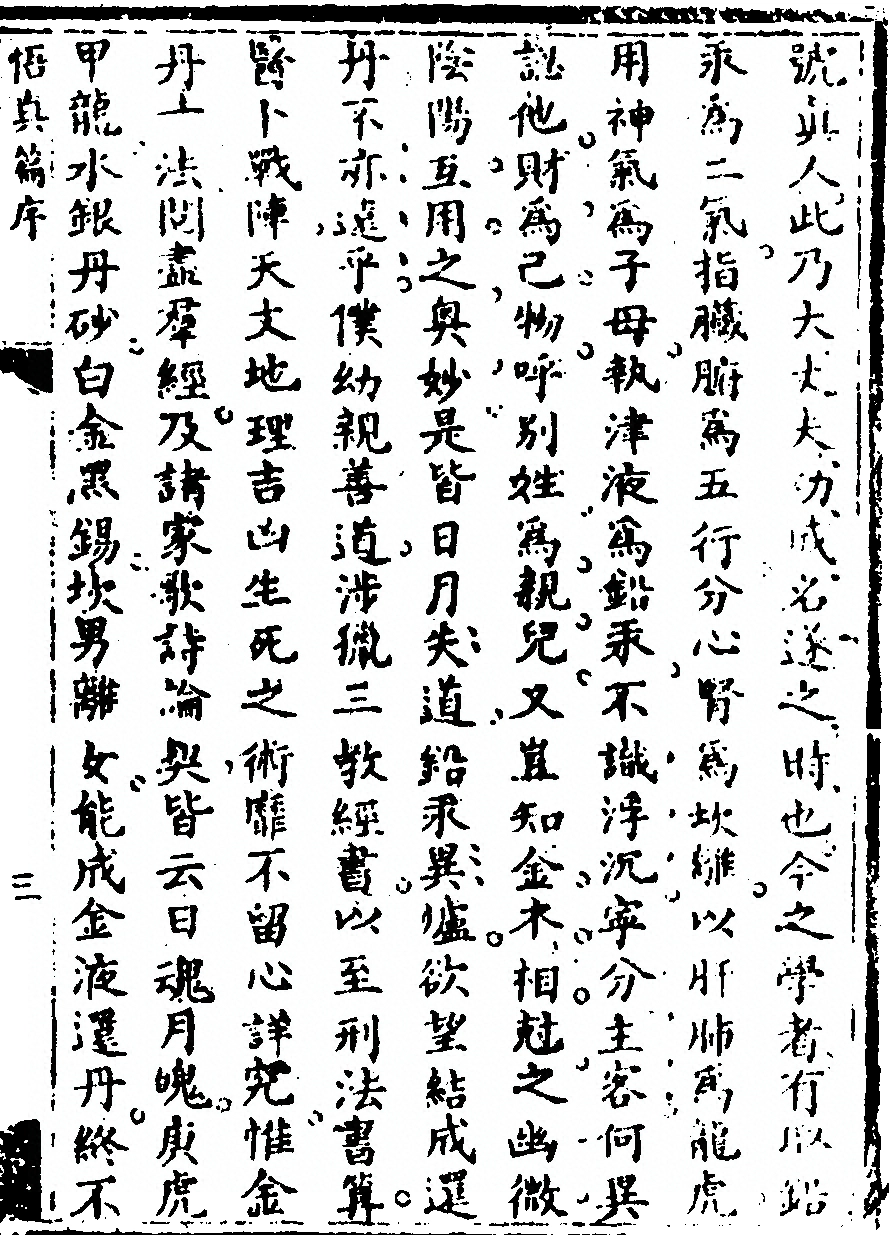 號真人此乃大丈夫功成名遂之時也今之學者有取鉛
汞爲二氣指臟腑爲五行分心腎爲坎離以肝肺爲龍虎
用神氣爲子母執津液爲鉛汞不識浮沉寧分主客何異
認他財爲己物呼別姓爲親兒又豈知金木相尅之幽微
陰陽互用之奥妙是皆日月失道鉛汞異爐欲望結成還
丹不亦遠乎僕幼親善道涉獵三教經書以至刑法書筭
醫卜戰陣天文地理吉凶生死之術靡不留心詳究惟金
丹一法閱盡羣經及諸家歌詩論契皆云日魂月魄庚虎
甲龍水銀丹砂白金黑錫坎男離女能成金液還丹終不
悟真篇序
三